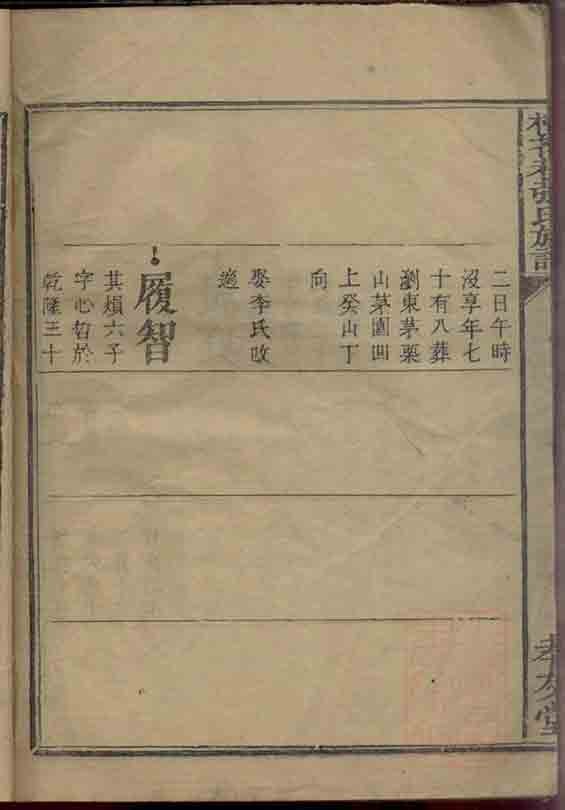 氏族
二日午時
沒享年七
十有八葬
瀏東茅栗
山茅園凹
上癸山丁
向
娶李氏改
適
履智
其煩六子
字心哲於
乾隆三十
孝友堂